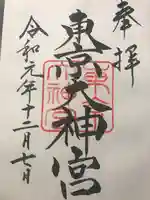 奉拝
東京大神宮
令和元年十二月七日